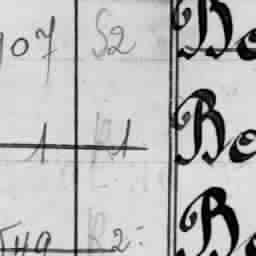 107 S2 Bo
1 R1 Bo
R2: Bo